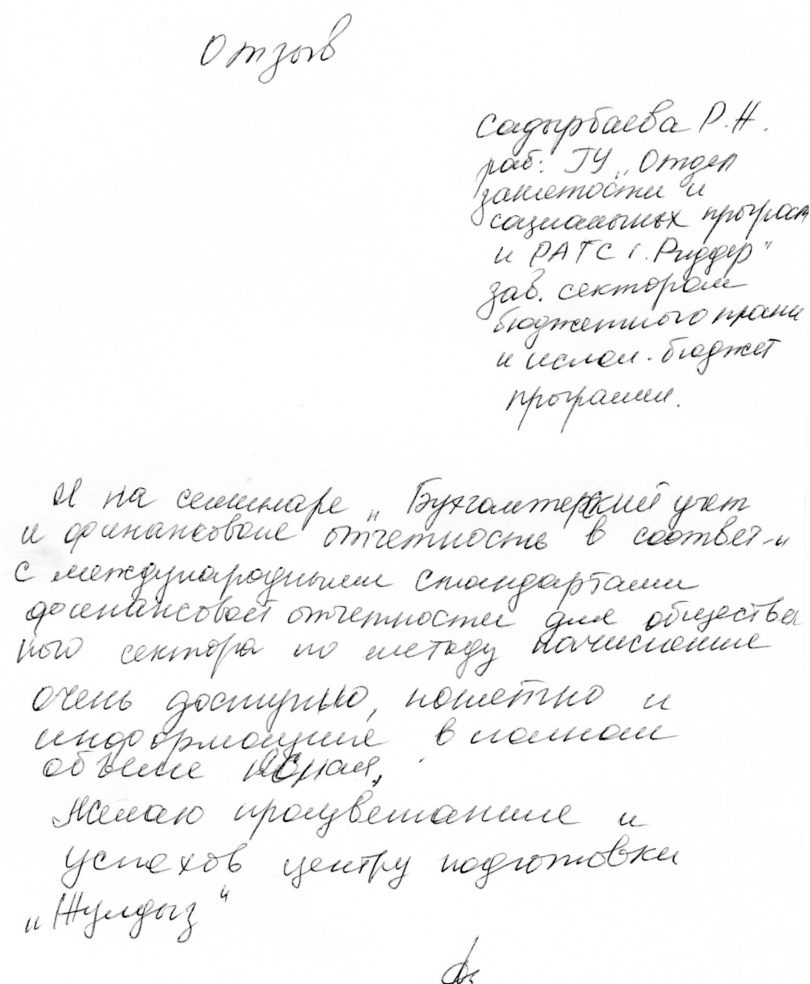 Отзыв
Садырбаева Р.Н.
раб: ГУ „Отдел
занятости и
социальных програм
и РАГС г. Риддер"
зав. сектором
бюджетного плани
и испол. бюджет
программ.
И на семинаре „Бухгалтерский учет
и финансовые отчетность в соответ-и
с международными стандартами
финансовой отчетности для обществен
ного сектора по методу начисление
очень доступно, понятно и
информация в полном
объеме
Желаю процветание и
успехов центру подготовки
„Жулдыз"